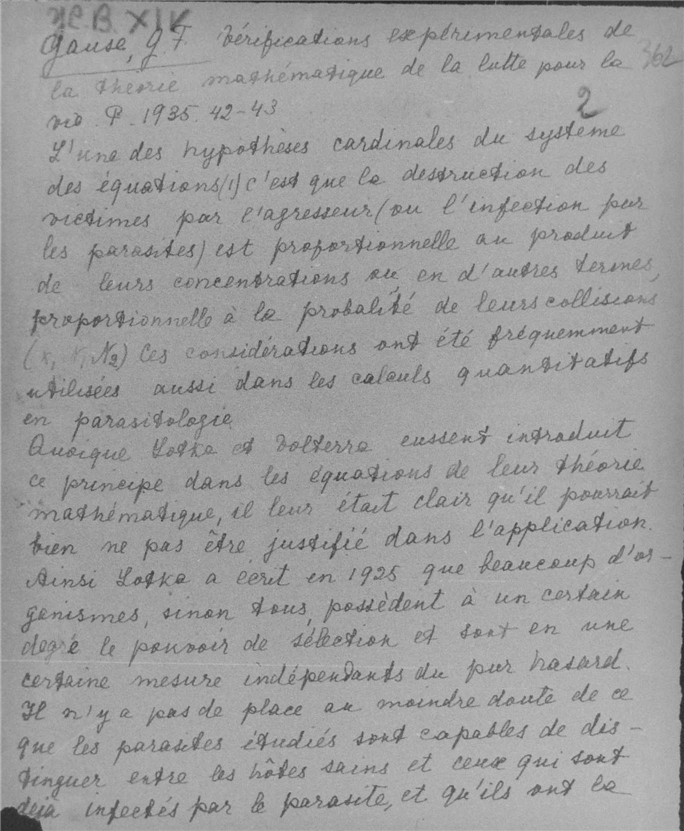 Н.В. XIV
Gause, G F Vérifications expérimentales de
la théorie mathématique de la lutte pour la
vie P. 1935. 42-43
362
2
L'une des hypothèses cardinales du système
des équations (1) c'est que la destruction des
victimes par l'agresseur (ou l'infection par
les parasites) est proportionnelle au produit
de leurs concentrations ou, en d'autres termes,
proportionnelle à la probalité de leurs collisions
N₂) Ces considérations ont été fréquemment
utilisées aussi dans les calculs quantitatifs
en parasitologie
Quoique Lotka et Volterra eussent introduit
ce principe dans les équations de leur théorie
mathématique, il leur était clair qu'il pourrait
bien ne pas être justifié dans l'application.
Ainsi Lotka a écrit en 1925 que beaucoup d'or-
ganismes, sinon tous, possèdent à un certain
degré le pouvoir de sélection et sont en une
certaine mesure indépendants du pur hasard.
Il n'y a pas de place au moindre doute de ce
que les parasites étudiés sont capables de dis-
tinguer entre les hôtes sains et ceux qui sont
déjà infectés par le parasite, et qu'ils ont la